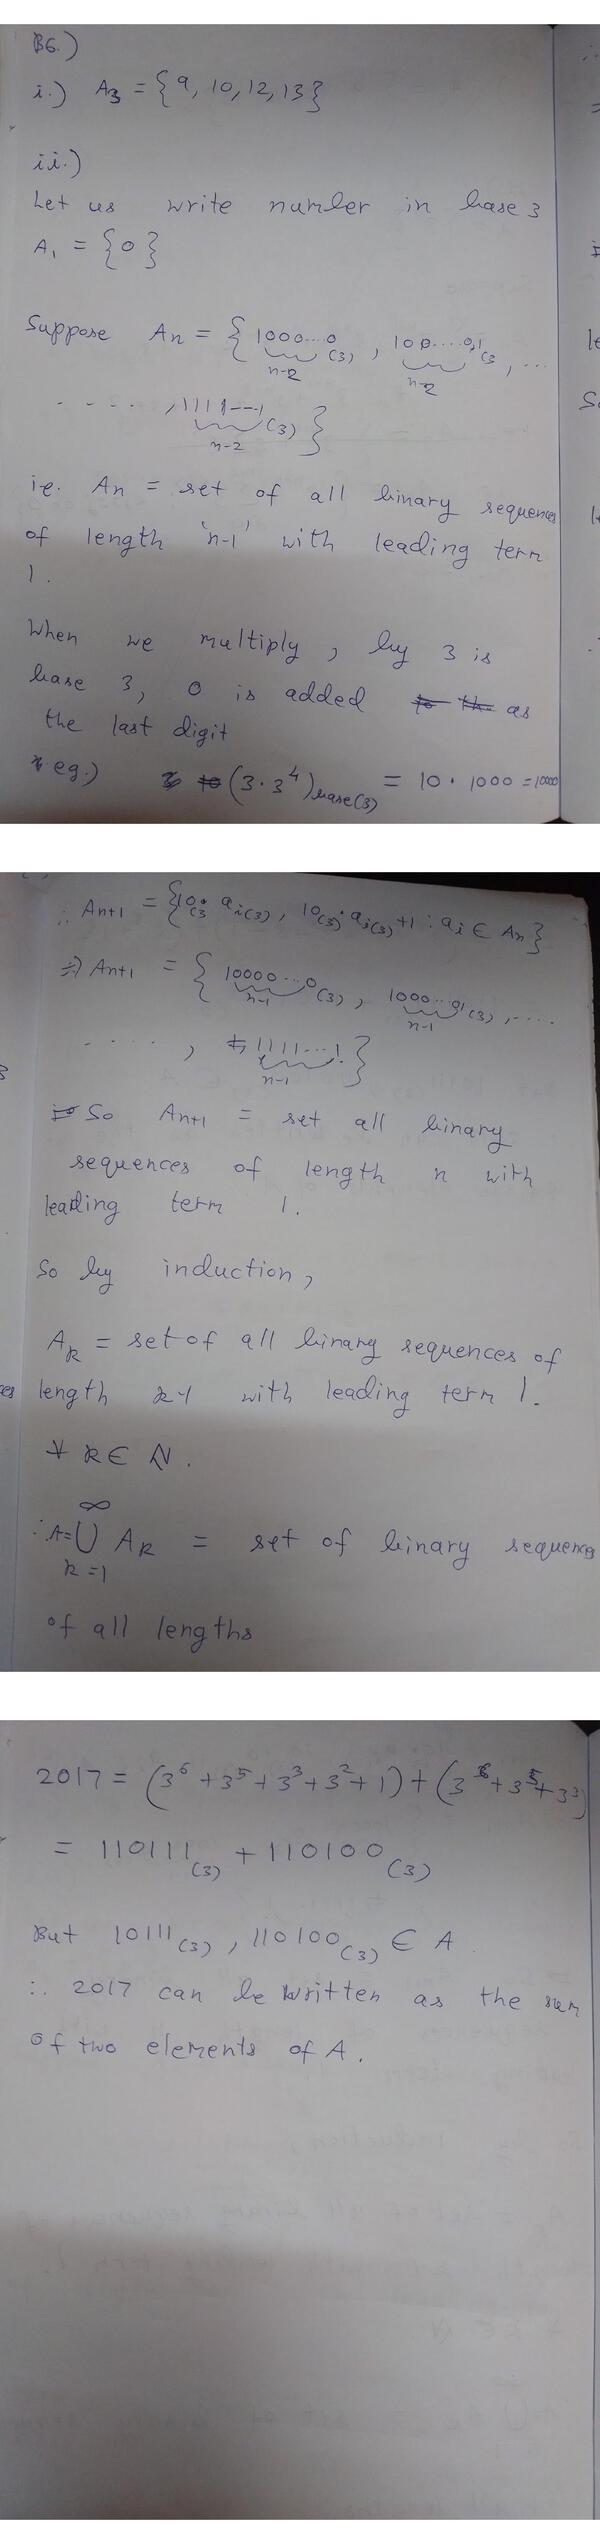 B6.)
i.) A3 = {9, 10, 12, 13}
ii.)
Let us write number in base 3
A1 = {0}
Suppose An = {1000....0 (3), 100....0,1 (3, ...
n-2 n-2
....., 1111---1 (3)}
n-2
ie. An = set of all binary sequences
of length 'n-1' with leading term
1.
When we multiply, by 3 is
base 3, 0 is added as
the last digit
eg.) (3·3^4)base(3) = 10·1000 = 10000
∴ An+1 = {10(3· ai(3), 10(3)·ai(3)+1 : ai ∈ An}
⇒ An+1 = {10000...0 (3), 1000...01 (3), ....
n-1 n-1
....., 1111...1}
n-1
So An+1 = set all binary
sequences of length n with
leading term 1.
So by induction,
Ak = set of all binary sequences of
length k-1 with leading term 1.
∀ k ∈ N.
∞
∴ A = ∪ Ak = set of binary sequences
k=1
of all lengths
2017 = (3^6 + 3^5 + 3^3 + 3^2 + 1) + (3^6 + 3^5 + 3^3)
= 110111(3) + 110100(3)
But 10111(3), 110100(3) ∈ A
∴ 2017 can be written as the sum
of two elements of A.